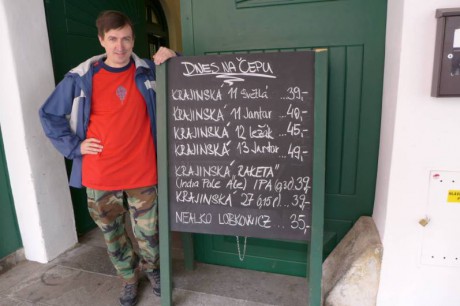 DNES NA ČEPU
KRAJINSKÁ 11 Světlá ...39,-
KRAJINSKÁ 11 Jantar ...40,-
KRAJINSKÁ 12 ležák ...45,-
KRAJINSKÁ 13 Jantar ...49,-
KRAJINSKÁ „RAKETA"
(India Pale Ale) IPA (0,3l) 39,-
KRAJINSKÁ 27 (0,15l) ..39,-
NEALKO LOBKOWICZ ...35,-